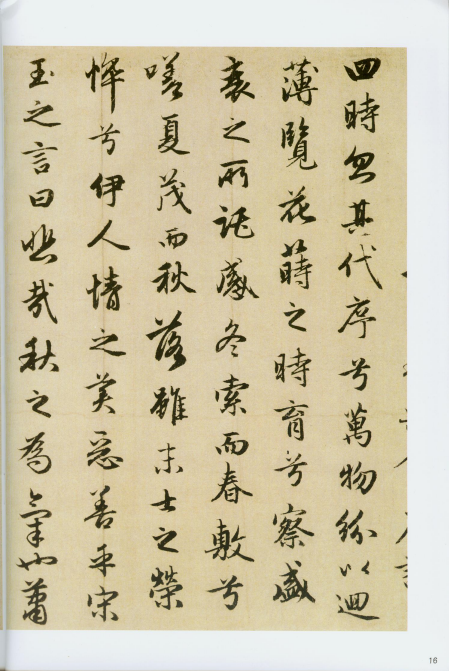 四時忽其代序兮萬物紛以迴
薄覽花蒔之時育兮察盛
衰之所託感冬索而春敷兮
嗟夏茂而秋落雖末士之榮
悴兮伊人情之美惡善乎宋
玉之言曰悲哉秋之為氣也蕭
16